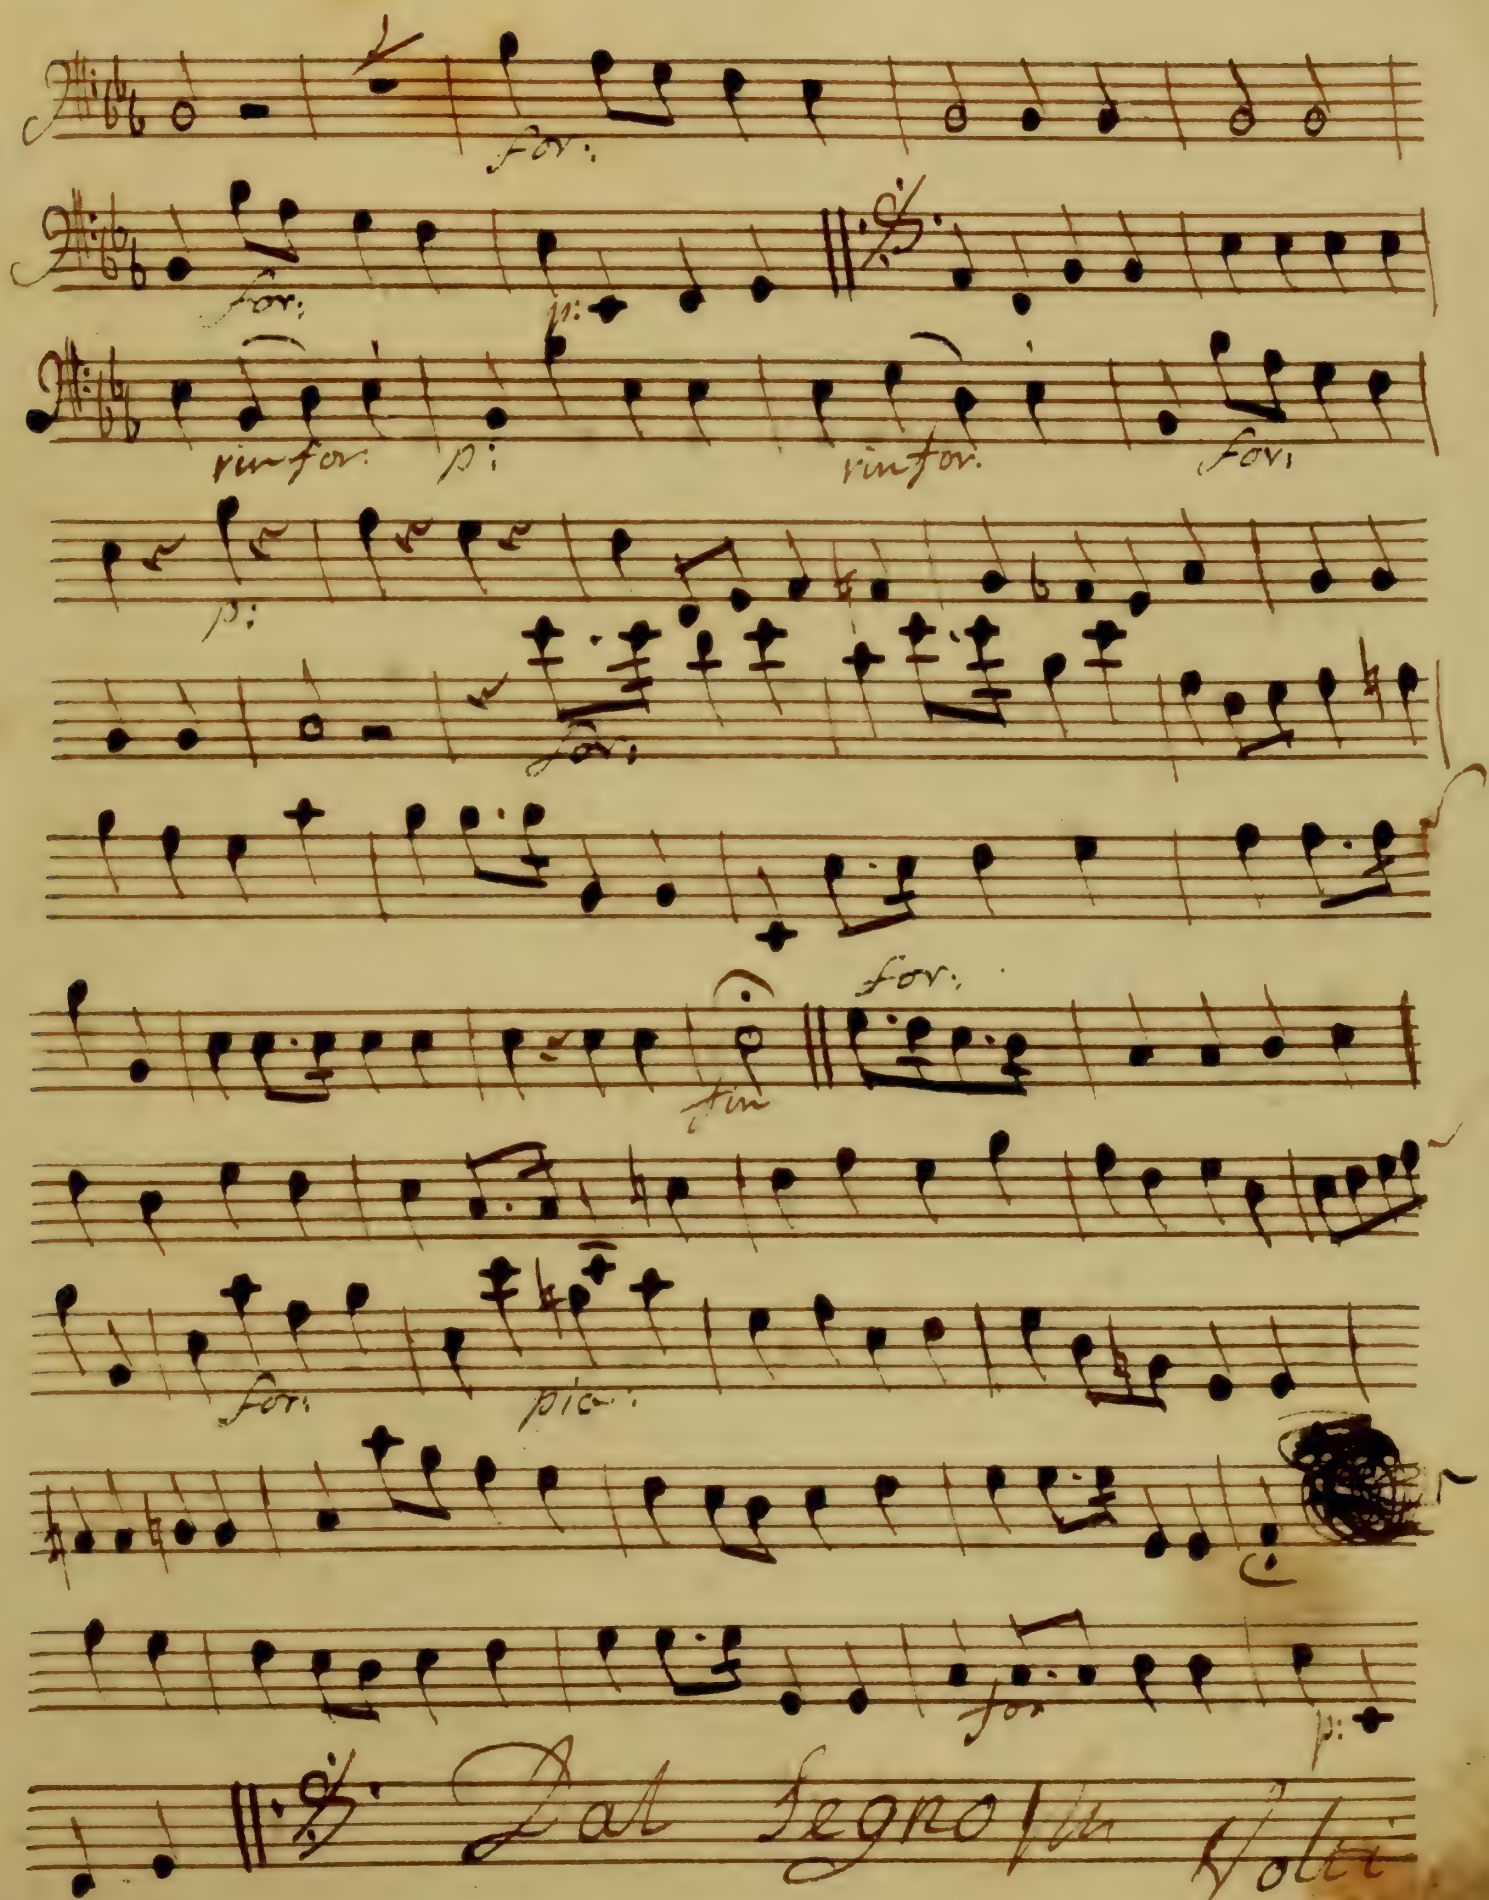 for:
for: p:
rinfor: p: rinfor: for:
p:
for:
for:
fin
for: pia:
for p:
Dal Segno Volti